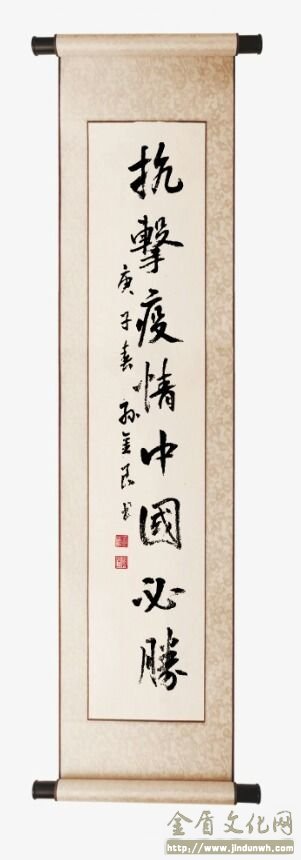 抗擊疫情中國必勝
庚子春 孙金良书
金盾文化网
http://www.jindunwh.com